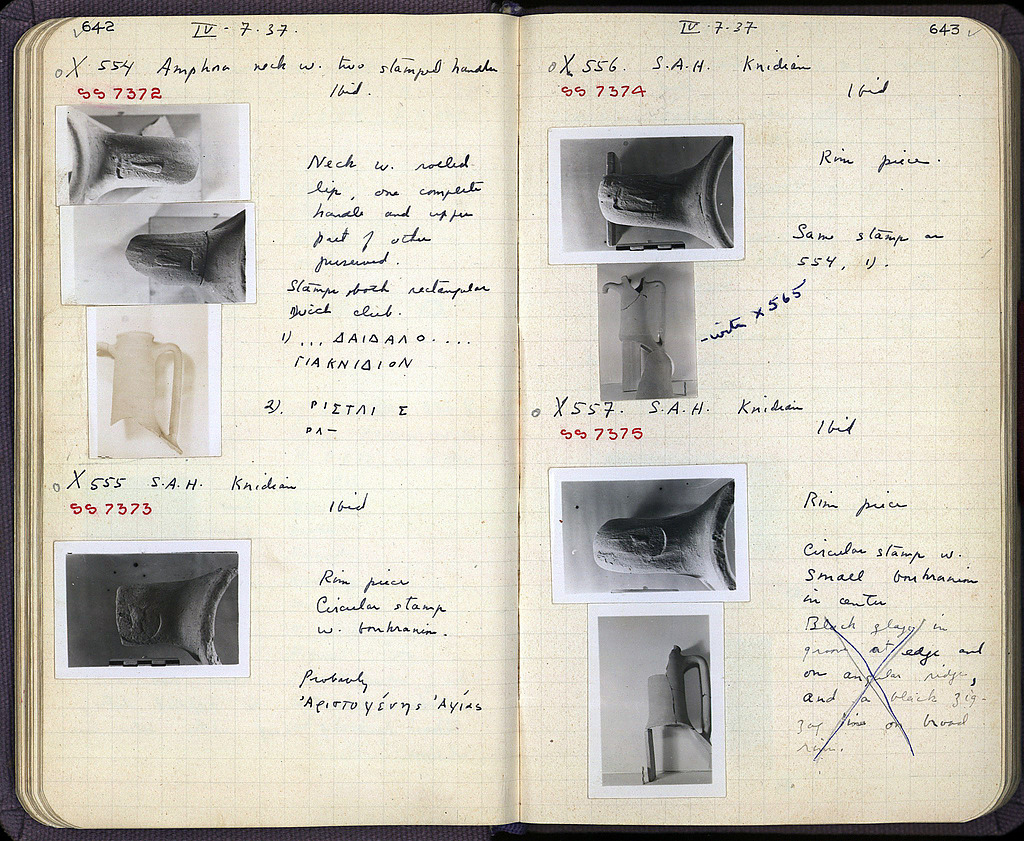 642
IV · 7 · 37.
X 554 Amphora neck w. two stamped handles
SS 7372
Ibid.
Neck w. rolled
lip, one complete
handle and upper
part of other
preserved.
Stamps both rectangular
club.
1) ... ΔΑΙΔΑΛΟ....
ΓΙΑΚΝΙΔΙΟΝ
2). ΡΙΣΤΛΙ Σ
ΡΛ-
X 555 S.A.H. Knidian
SS 7373
Ibid
Rim piece
Circular stamp
w. boukranion.
Probably
Ἀριστογένης Ἀγίας
IV · 7 · 37
643
X 556. S.A.H. Knidian
SS 7374
Ibid
Rim piece.
Same stamp as
554, 1).
- with X 565
X 557. S.A.H. Knidian
SS 7375
Ibid
Rim piece
Circular stamp w.
small boukranion
in center
Black glaze in
groove at edge and
on angular ridge,
and a black zig-
zag line on broad
rim.